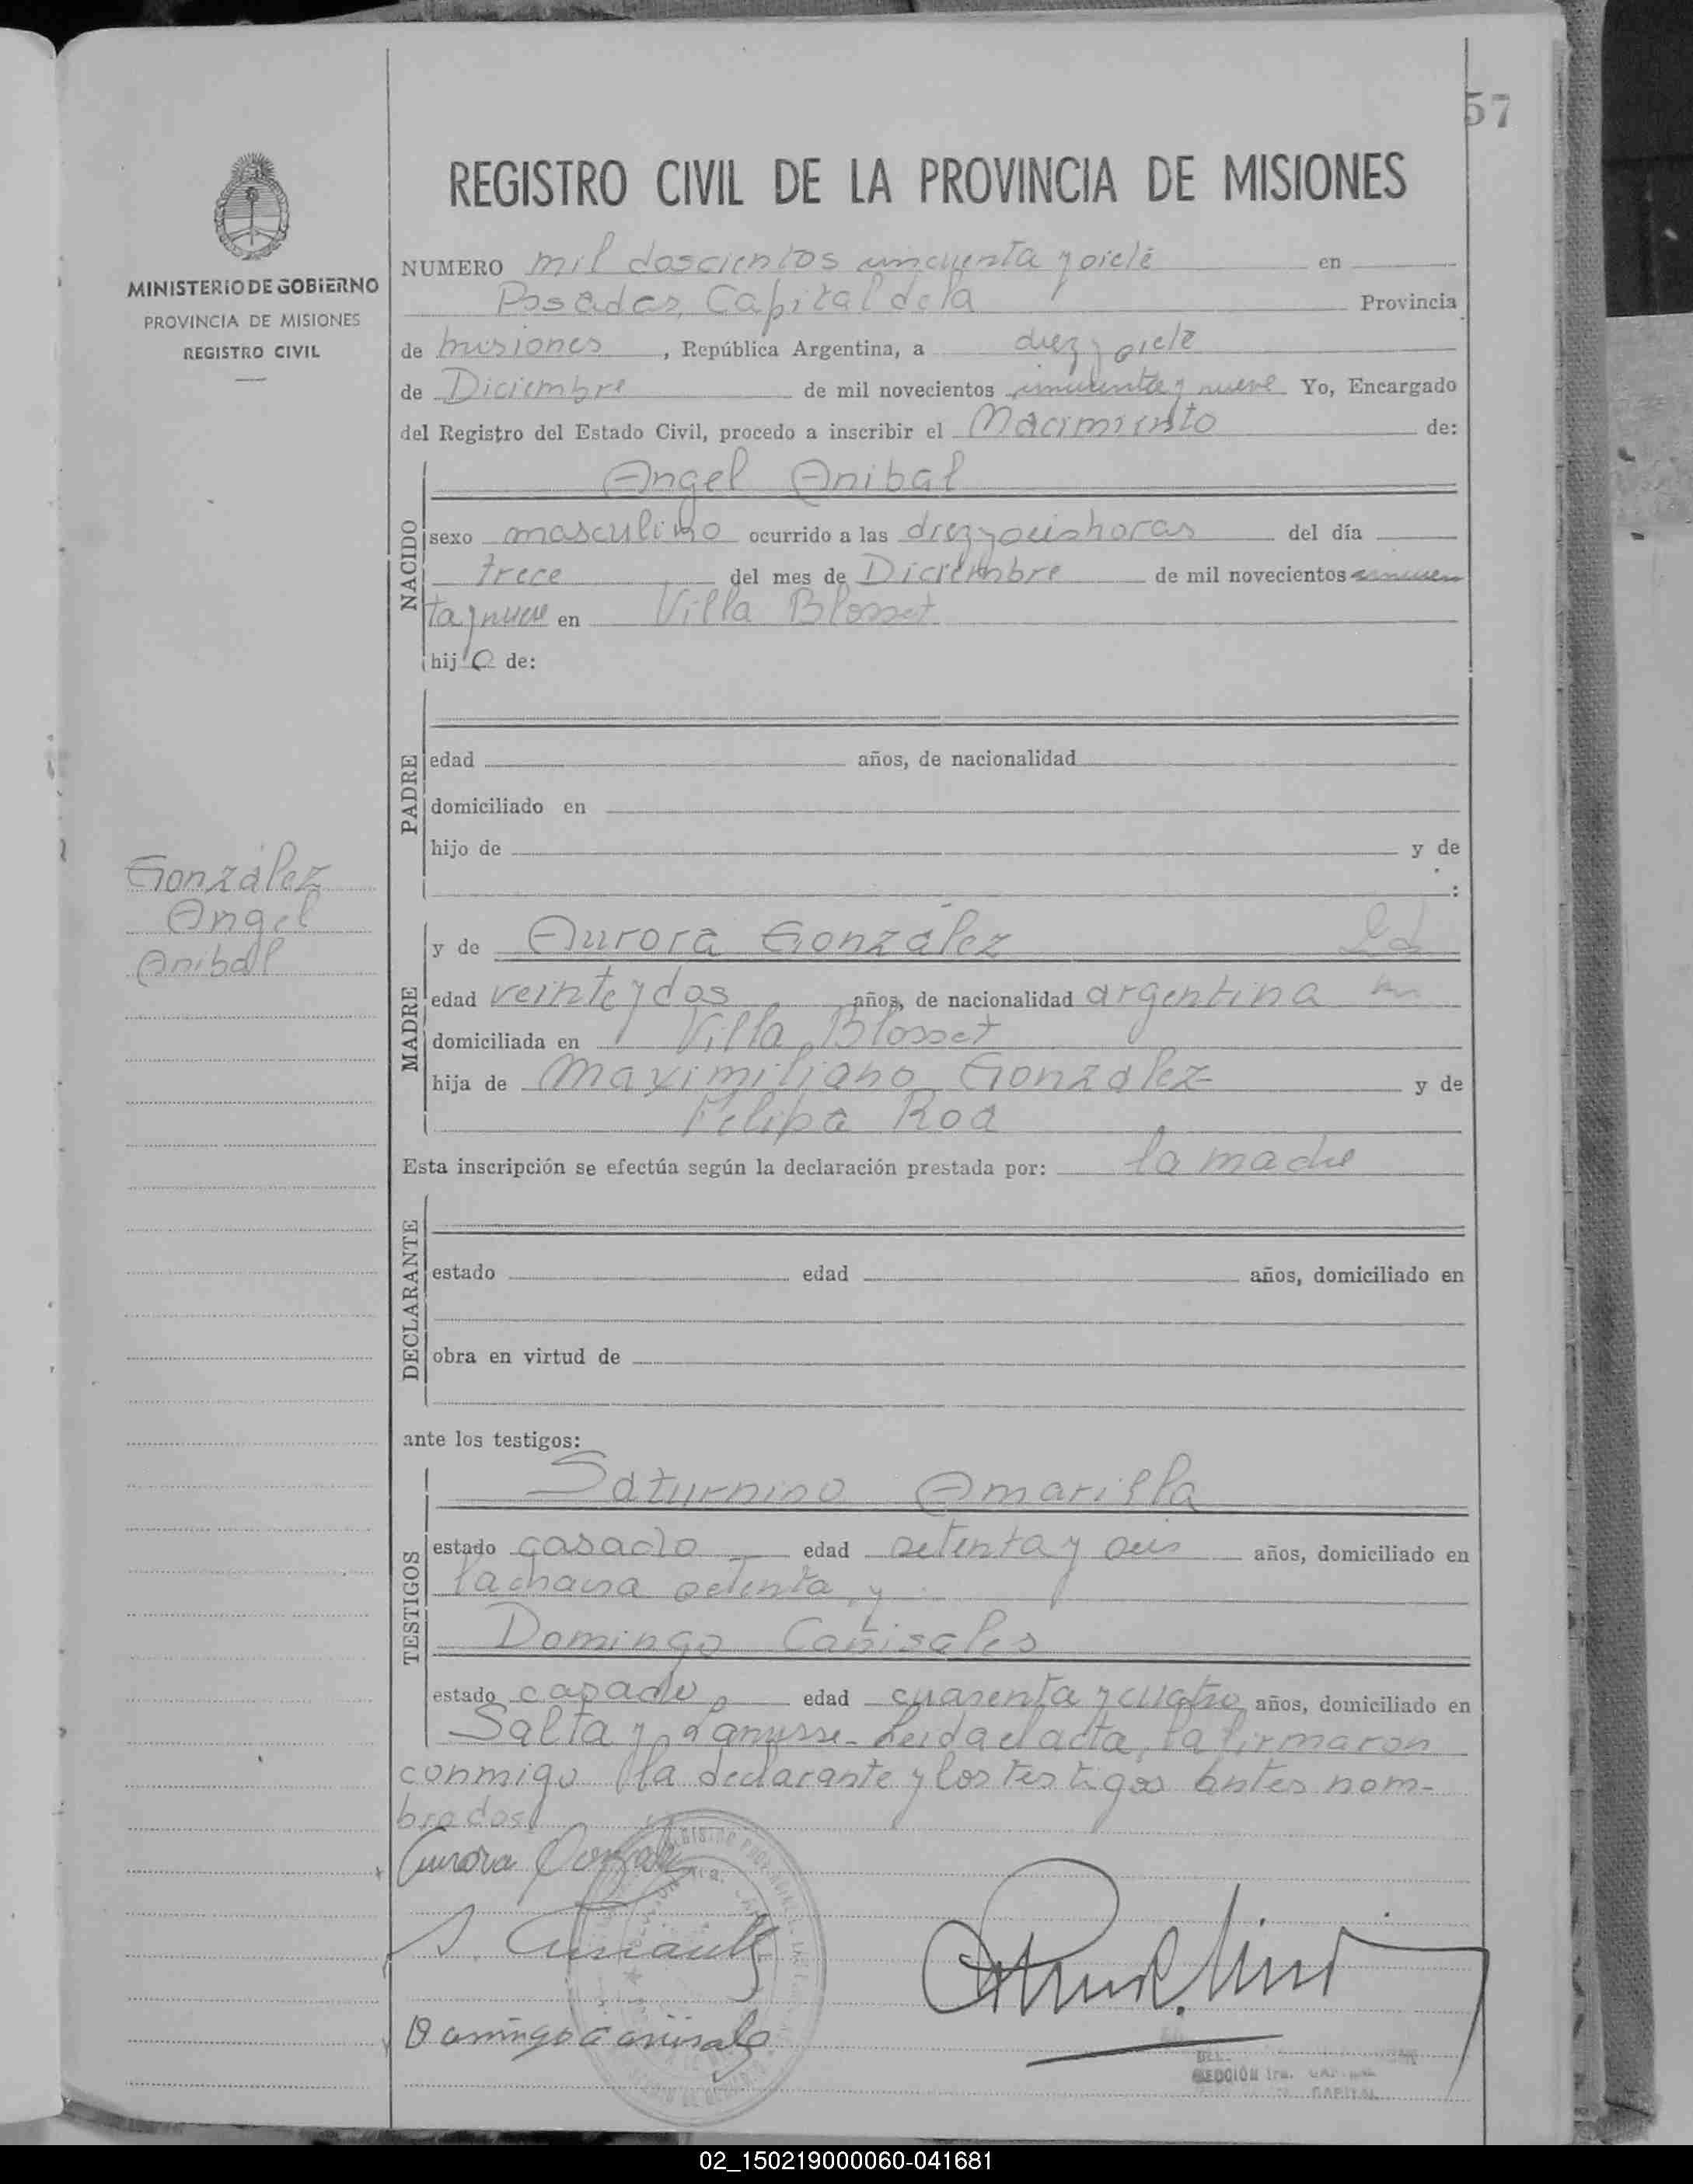 57
REGISTRO CIVIL DE LA PROVINCIA DE MISIONES
MINISTERIO DE GOBIERNO
PROVINCIA DE MISIONES
REGISTRO CIVIL
NUMERO mil doscientos cincuenta y siete en
Posadas, Capital de la Provincia
de Misiones, República Argentina, a diez y siete
de Diciembre de mil novecientos cincuenta y nueve Yo, Encargado
del Registro del Estado Civil, procedo a inscribir el Nacimiento de:
NACIDO
Angel Anibal
sexo masculino ocurrido a las diez y seis horas del día
trece del mes de Diciembre de mil novecientos cincuen
ta y nueve en Villa Blosset
hijo de:
PADRE
edad años, de nacionalidad
domiciliado en
hijo de y de
:
González
Angel
Anibal
MADRE
y de Aurora González
edad veinte y dos años, de nacionalidad argentina
domiciliada en Villa Blosset
hija de Maximiliano González y de
Felipa Roa
Esta inscripción se efectúa según la declaración prestada por: la madre
DECLARANTE
estado edad años, domiciliado en
obra en virtud de
ante los testigos:
TESTIGOS
Saturnino Amarilla
estado casado edad setenta y seis años, domiciliado en
la chacra setenta y
Domingo Cañisales
estado casado, edad cuarenta y cuatro años, domiciliado en
Salta y Lanusse- Leida el acta, la firmaron
conmigo la declarante y los testigos antes nom-
brados
Aurora González
S. Amarilla
Domingo Cañisales
SECCIÓN 1ra. CAPITAL
CAPITAL
02_150219000060-041681